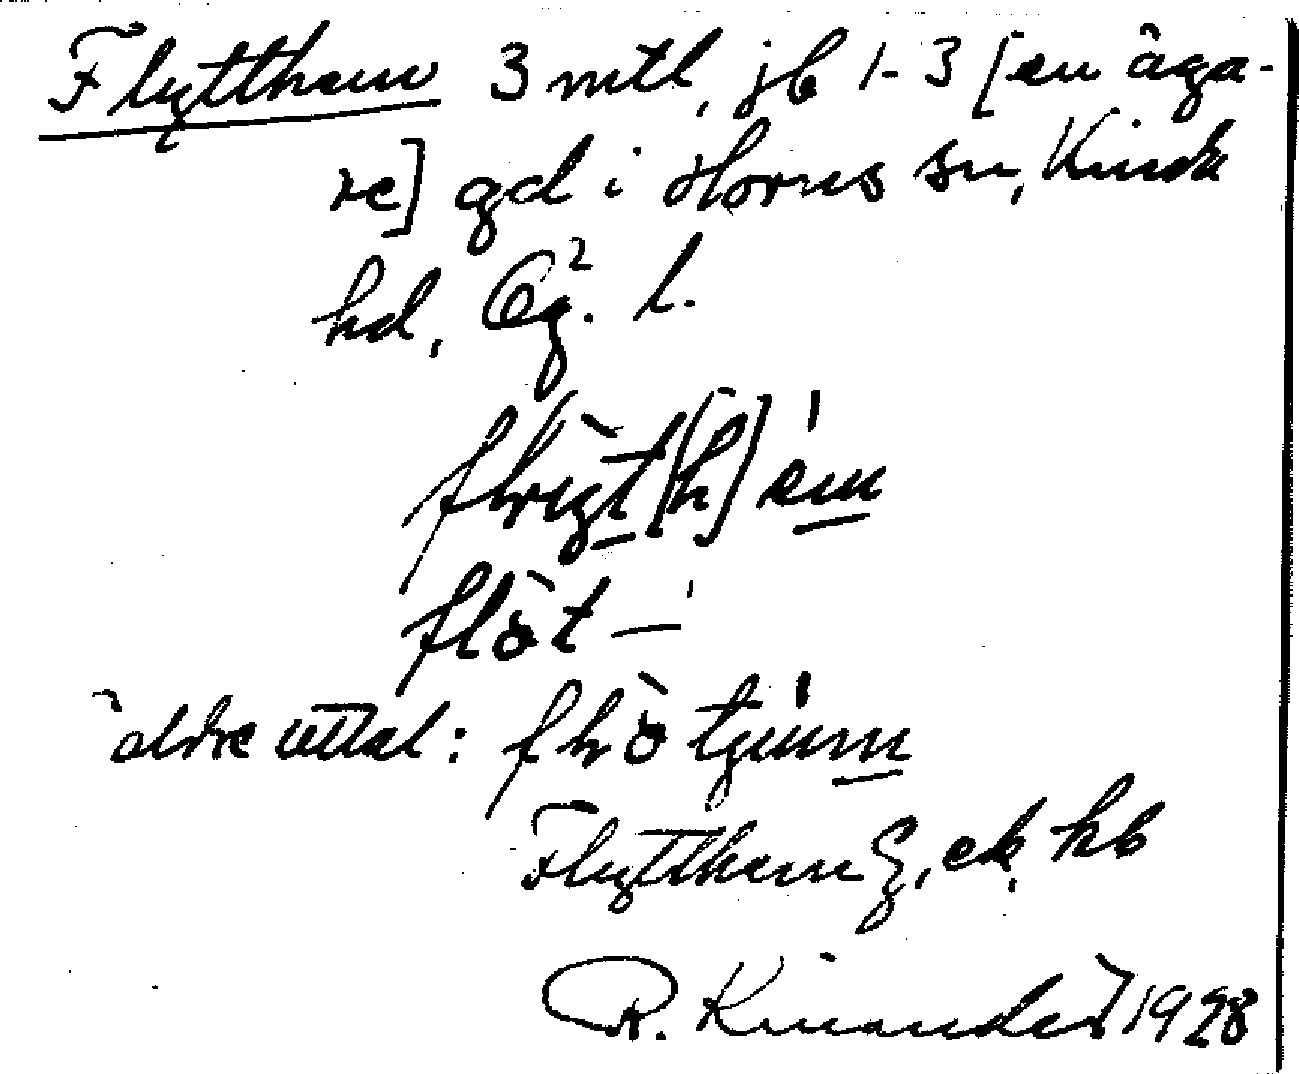 Flytthem 3 mtl, jb 1-3 [en äga-
re] gd i Horns sn, Kinda
hd, Ög. l.
flyt[h]em
flöt –
äldre uttal:
Flytthem ek, kb
R. Kinander 1928